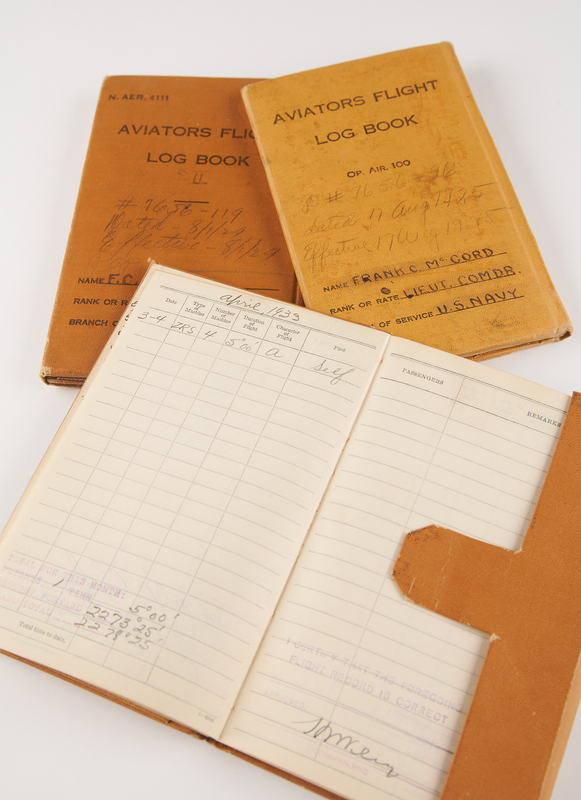 N. AER. 4111
AVIATORS FLIG
LOG BOOK
# 7656-119
Dated - 8/1/29
Effective - 8/1/29
NAME F.C.
RANK OR R
BRANCH O
AVIATORS FLIGHT
LOG BOOK
OP. AIR. 100
# 7656-96
Dated 17 Aug 1925
Effective 17 Aug 1925
NAME FRANK C. McCORD
RANK OR RATE LIEUT. COMDR.
OF SERVICE U.S. NAVY
April, 1933
Date Type of Machine Number of Machine Duration of Flight Character of Flight Pilot
3-4 ZRS 4 5°00' A Self
TOTAL FOR THIS MONTH:
5°00'
2273°25'
2278°25'
Total time to date,
PASSENGERS REMARKS
I CERTIFY THAT THE FOREGOING
FLIGHT RECORD IS CORRECT